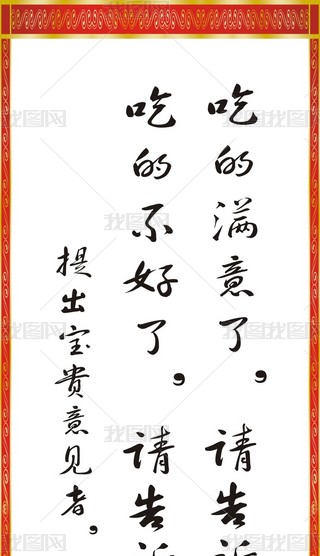 吃的满意了，请告诉
吃的不好了，请告诉
提出宝贵意见者，